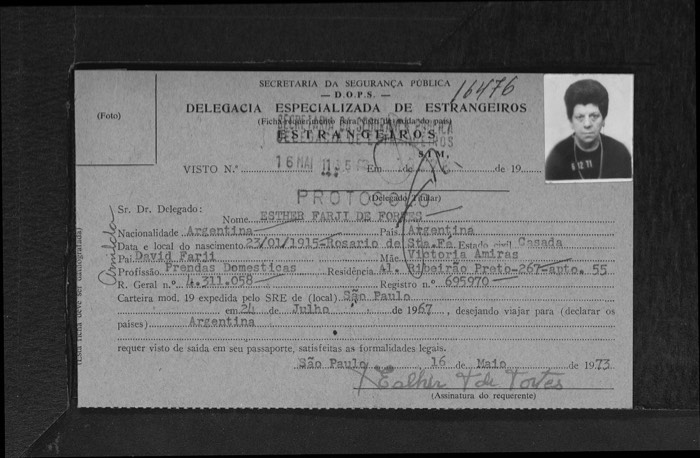 SECRETARIA DA SEGURANÇA PÚBLICA
— D.O.P.S. —
16476
DELEGACIA ESPECIALIZADA DE ESTRANGEIROS
(Foto)
ESTRANGEIROS
SIM,
VISTO N.º
16 MAI 11 35
Em de de 19
PROTOCOLO
(Delegado Titular)
Sr. Dr. Delegado:
Nome ESTHER FARJI DE FORTES
Nacionalidade Argentina País Argentina
Data e local do nascimento 23/01/1915-Rosario de Sta.Fé Estado civil Casada
Pai David Farji Mãe Victoria Amiras
Profissão Prendas Domesticas Residência Al. Ribeirão Preto-267-apto. 55
R. Geral n.º 4.311.058 Registro n.º 695970
Carteira mod. 19 expedida pelo SRE de (local) São Paulo
em 24 de Julho de 1967, desejando viajar para (declarar os
países) Argentina
requer visto de saída em seu passaporte, satisfeitas as formalidades legais.
São Paulo 16 de Maio de 1973
Esther F de Fortes
(Assinatura do requerente)